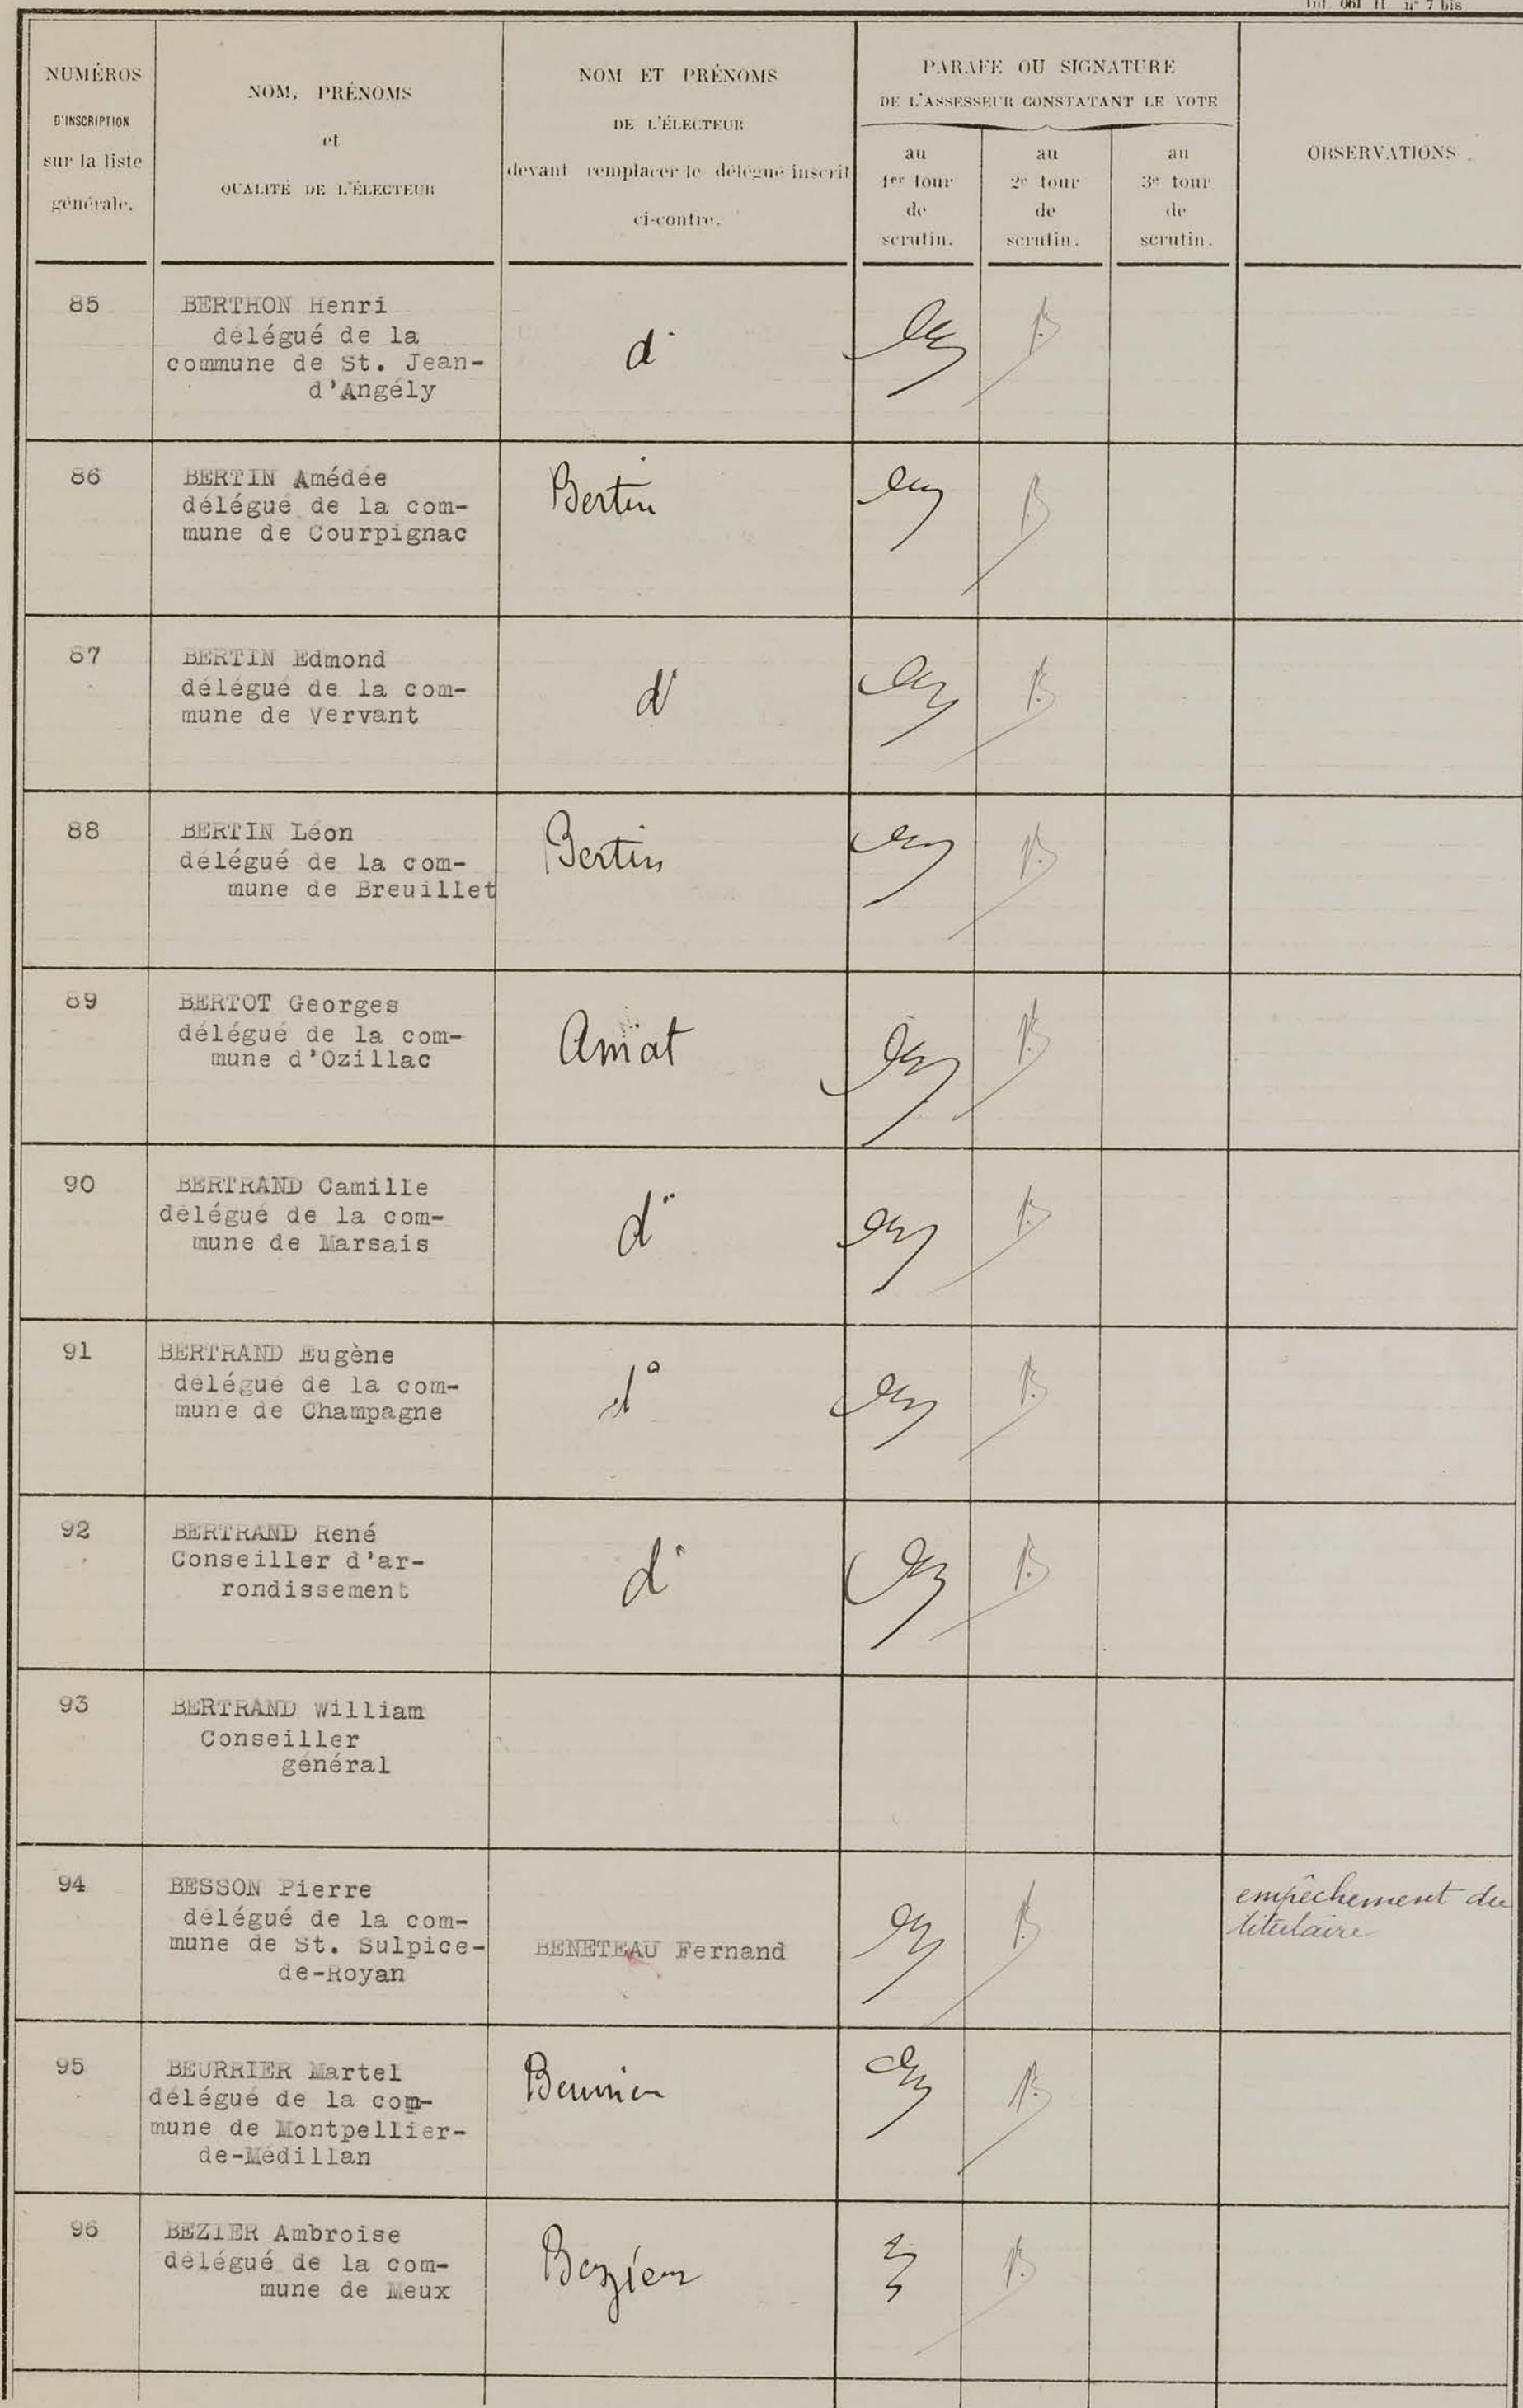 NUMÉROS
D'INSCRIPTION
sur la liste
générale.
NOM, PRÉNOMS
et
QUALITÉ DE L'ÉLECTEUR
NOM ET PRÉNOMS
DE L'ÉLECTEUR
devant remplacer le délégué inscrit
ci-contre.
PARAFE OU SIGNATURE
DE L'ASSESSEUR CONSTATANT LE VOTE
au
1er tour
de
scrutin.
au
2e tour
de
scrutin.
au
3e tour
de
scrutin.
OBSERVATIONS
85
BERTHON Henri
délégué de la
commune de St. Jean-
d'Angély
d°
86
BERTIN Amédée
délégué de la com-
mune de Courpignac
Bertin
B
87
BERTIN Edmond
délégué de la com-
mune de Vervant
d°
B
88
BERTIN Léon
délégué de la com-
mune de Breuillet
Bertin
B
89
BERTOT Georges
délégué de la com-
mune d'Ozillac
Amat
B
90
BERTRAND Camille
délégué de la com-
mune de Marsais
d°
B
91
BERTRAND Eugène
délégué de la com-
mune de Champagne
d°
B
92
BERTRAND René
Conseiller d'ar-
rondissement
d°
B
93
BERTRAND William
Conseiller
général
94
BESSON Pierre
délégué de la com-
mune de St. Sulpice-
de-Royan
BENETEAU Fernand
B
empêchement du
titulaire
95
BEURRIER Martel
délégué de la com-
mune de Montpellier-
de-Médillan
Beurrier
B
96
BEZIER Ambroise
délégué de la com-
mune de Meux
Bezier
B